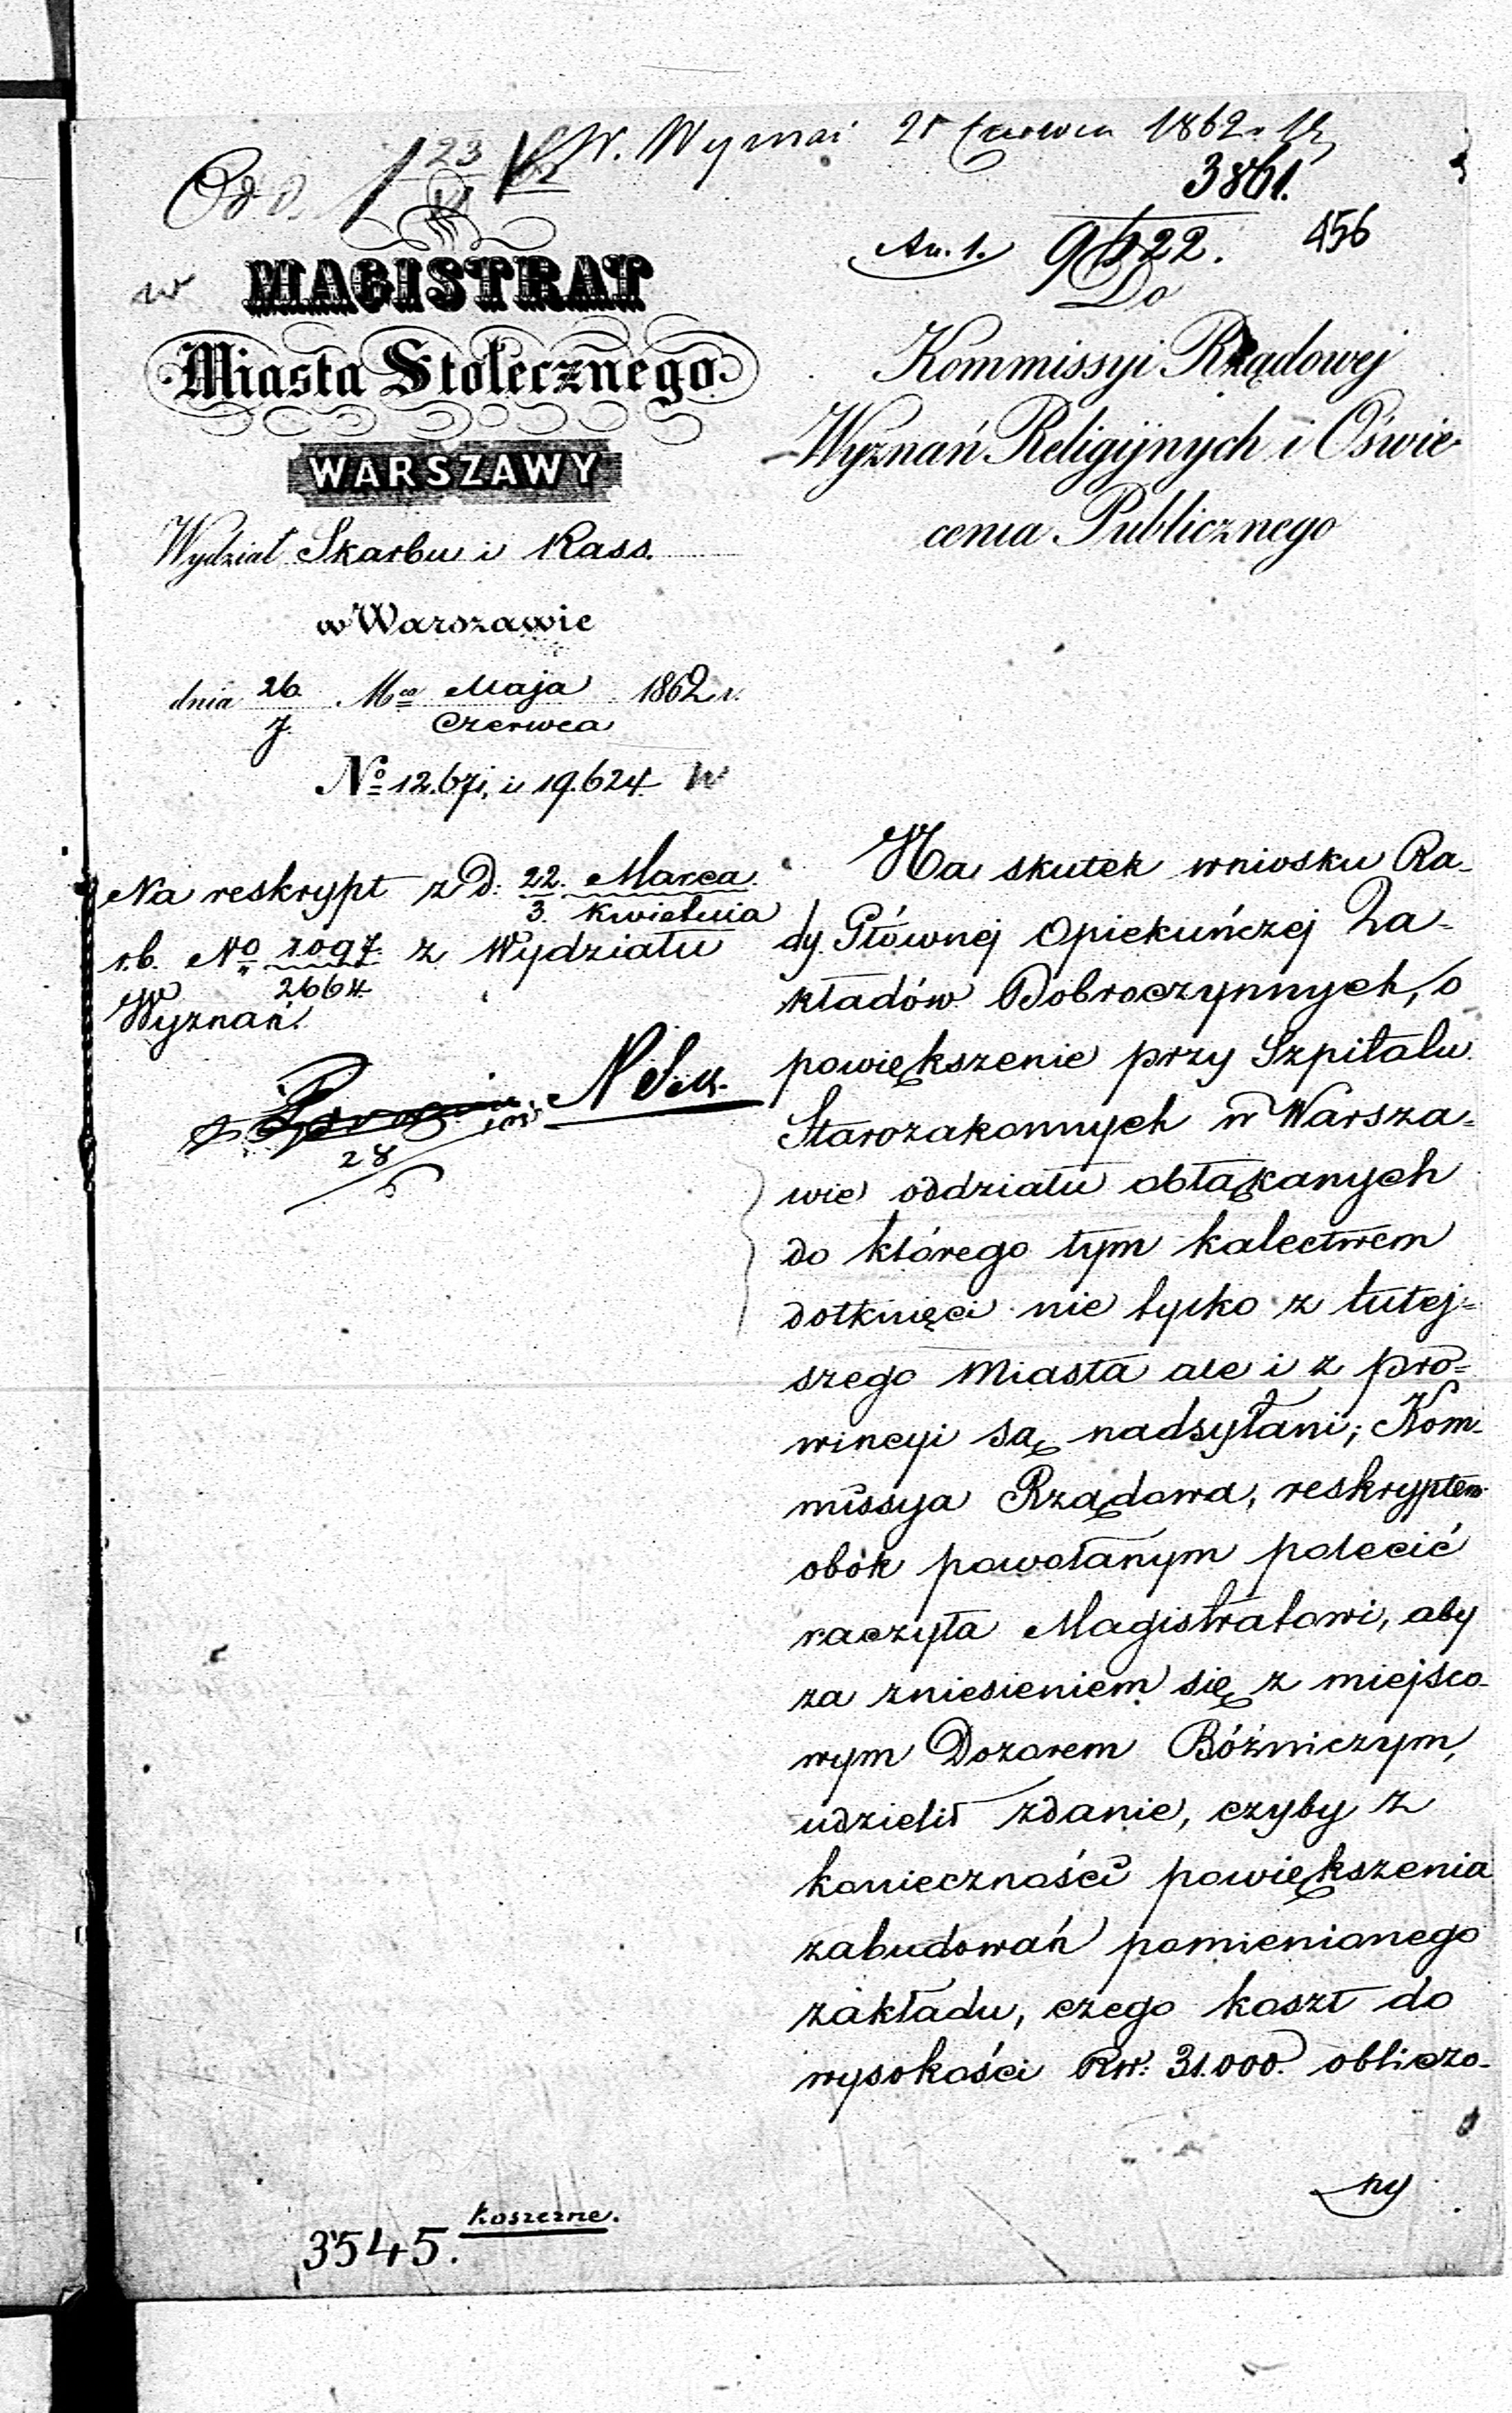 W. Wyznań 25 Czerwca 1862 r.
3861.
An. 1. 9522. 456
MAGISTRAT
Miasta Stołecznego
WARSZAWY
Wydział Skarbu i Kass.
w Warszawie
dnia 26/7. Mca Maja/Czerwca 1862 r.
No 12.671, i 19.624
Na reskrypt z D. 22. Marca
3. Kwietnia
r.b. No 1097. z Wydziału
2664.
Wyznań.
28
Do
Kommissyi Rządowej
Wyznań Religijnych i Oświe-
cenia Publicznego
Na skutek wniosku Ra-
dy Głównej Opiekuńczej Za-
kładów Dobroczynnych, o
powiększenie przy Szpitalu
Starozakonnych w Warsza-
wie oddziału obłąkanych
do którego tym kalectwem
dotknięci nie tylko z tutej-
szego Miasta ale i z pro-
wincyi są nadsyłani; Kom-
missya Rządowa, reskryptem
obok powołanym polecić
raczyła Magistratowi, aby
za zniesieniem się z miejsco-
wym Dozorem Bóżniczym,
udzielił zdanie, czyby z
konieczności powiększenia
zabudowań pomienionego
zakładu, czego koszt do
wysokości Rsr: 31.000. obliczo-
ny
koszerne.
3545.